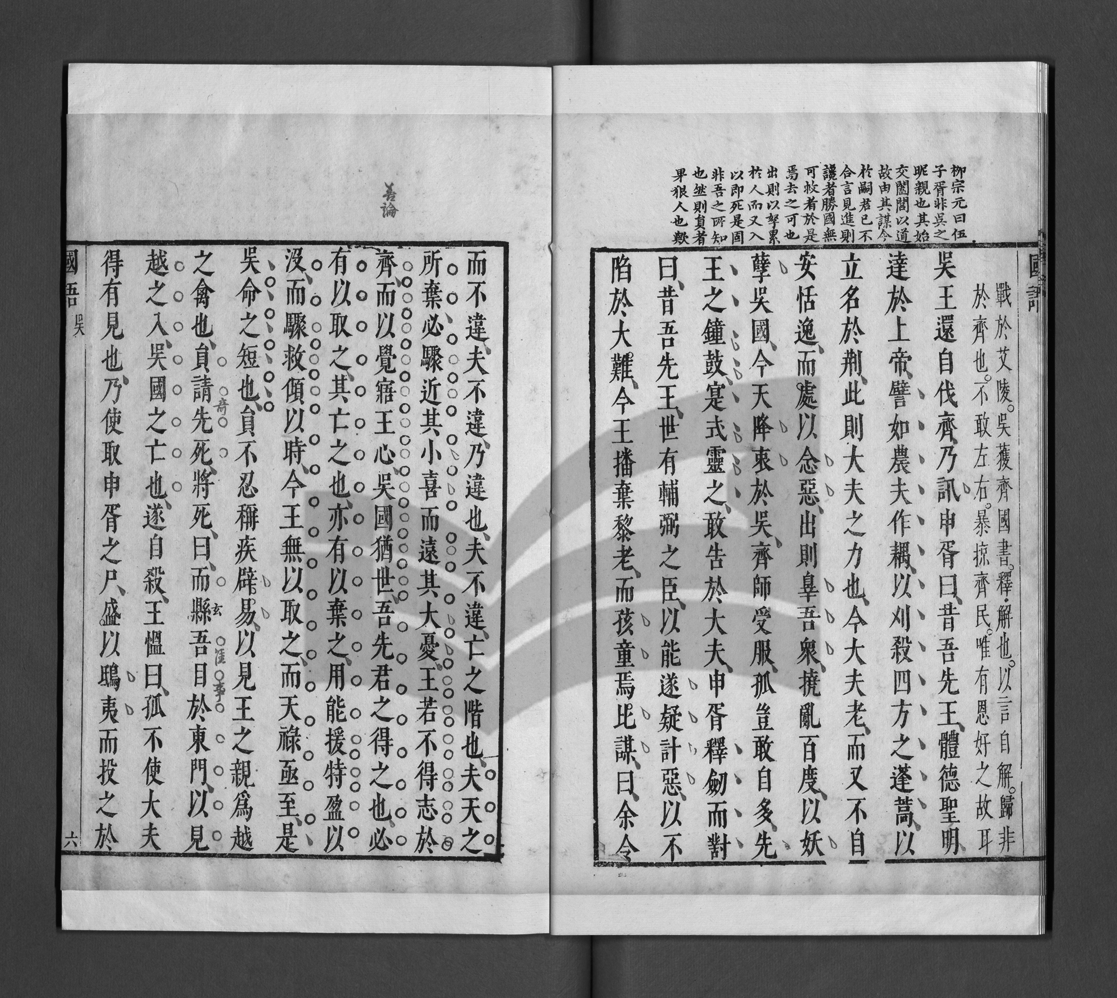 柳宗元曰伍
子胥非吳之
昵親也其始
交闔閭以道
故由其謀今
於嗣君已不
合言見進則
讒者勝國無
可救者於是
焉去之可也
出則以孥累
於人而又入
以即死是固
非吾之所知
也然則員者
果狠人也歟
國語
戰於艾陵。吳獲齊國書。釋解也。以言自解。歸非
於齊也。不敢左右。暴掠齊民。唯有恩好之故耳
吳王還自伐齊、乃訊申胥曰、昔吾先王、體德聖明、
達於上帝、譬如農夫作耦、以刈殺四方之蓬蒿、以
立名於荆、此則大夫之力也、今大夫老、而又不自
安恬逸、而處以念惡、出則辠吾衆、撓亂百度、以妖
孽吳國、今天降衷於吳、齊師受服、孤豈敢自多、先
王之鐘鼓、寔式靈之、敢告於大夫、申胥釋劒而對
曰、昔吾先王、世有輔弼之臣、以能遂疑計惡、以不
陷於大難、今王播棄黎老、而孩童焉比謀、曰、余令
善論
而不違、夫不違、乃違也、夫不違、亡之階也、夫天之
所棄必驟近其小喜而遠其大憂、王若不得志於
齊、而以覺寤王心、吳國猶世、吾先君之得之也、必
有以取之、其亡之也、亦有以棄之、用能援特盈以
沒、而驟救傾以時、今王無以取之、而天祿亟至、是
吳命之短也、員不忍稱疾辟易、以見王之親爲越
之禽也、員請先死、將死、曰、而縣吾目於東門、以見
奇
玄
事
越之入、吳國之亡也、遂自殺、王慍曰、孤不使大夫
得有見也、乃使取申胥之尸、盛以鴟夷、而投之於
國語
吳
六